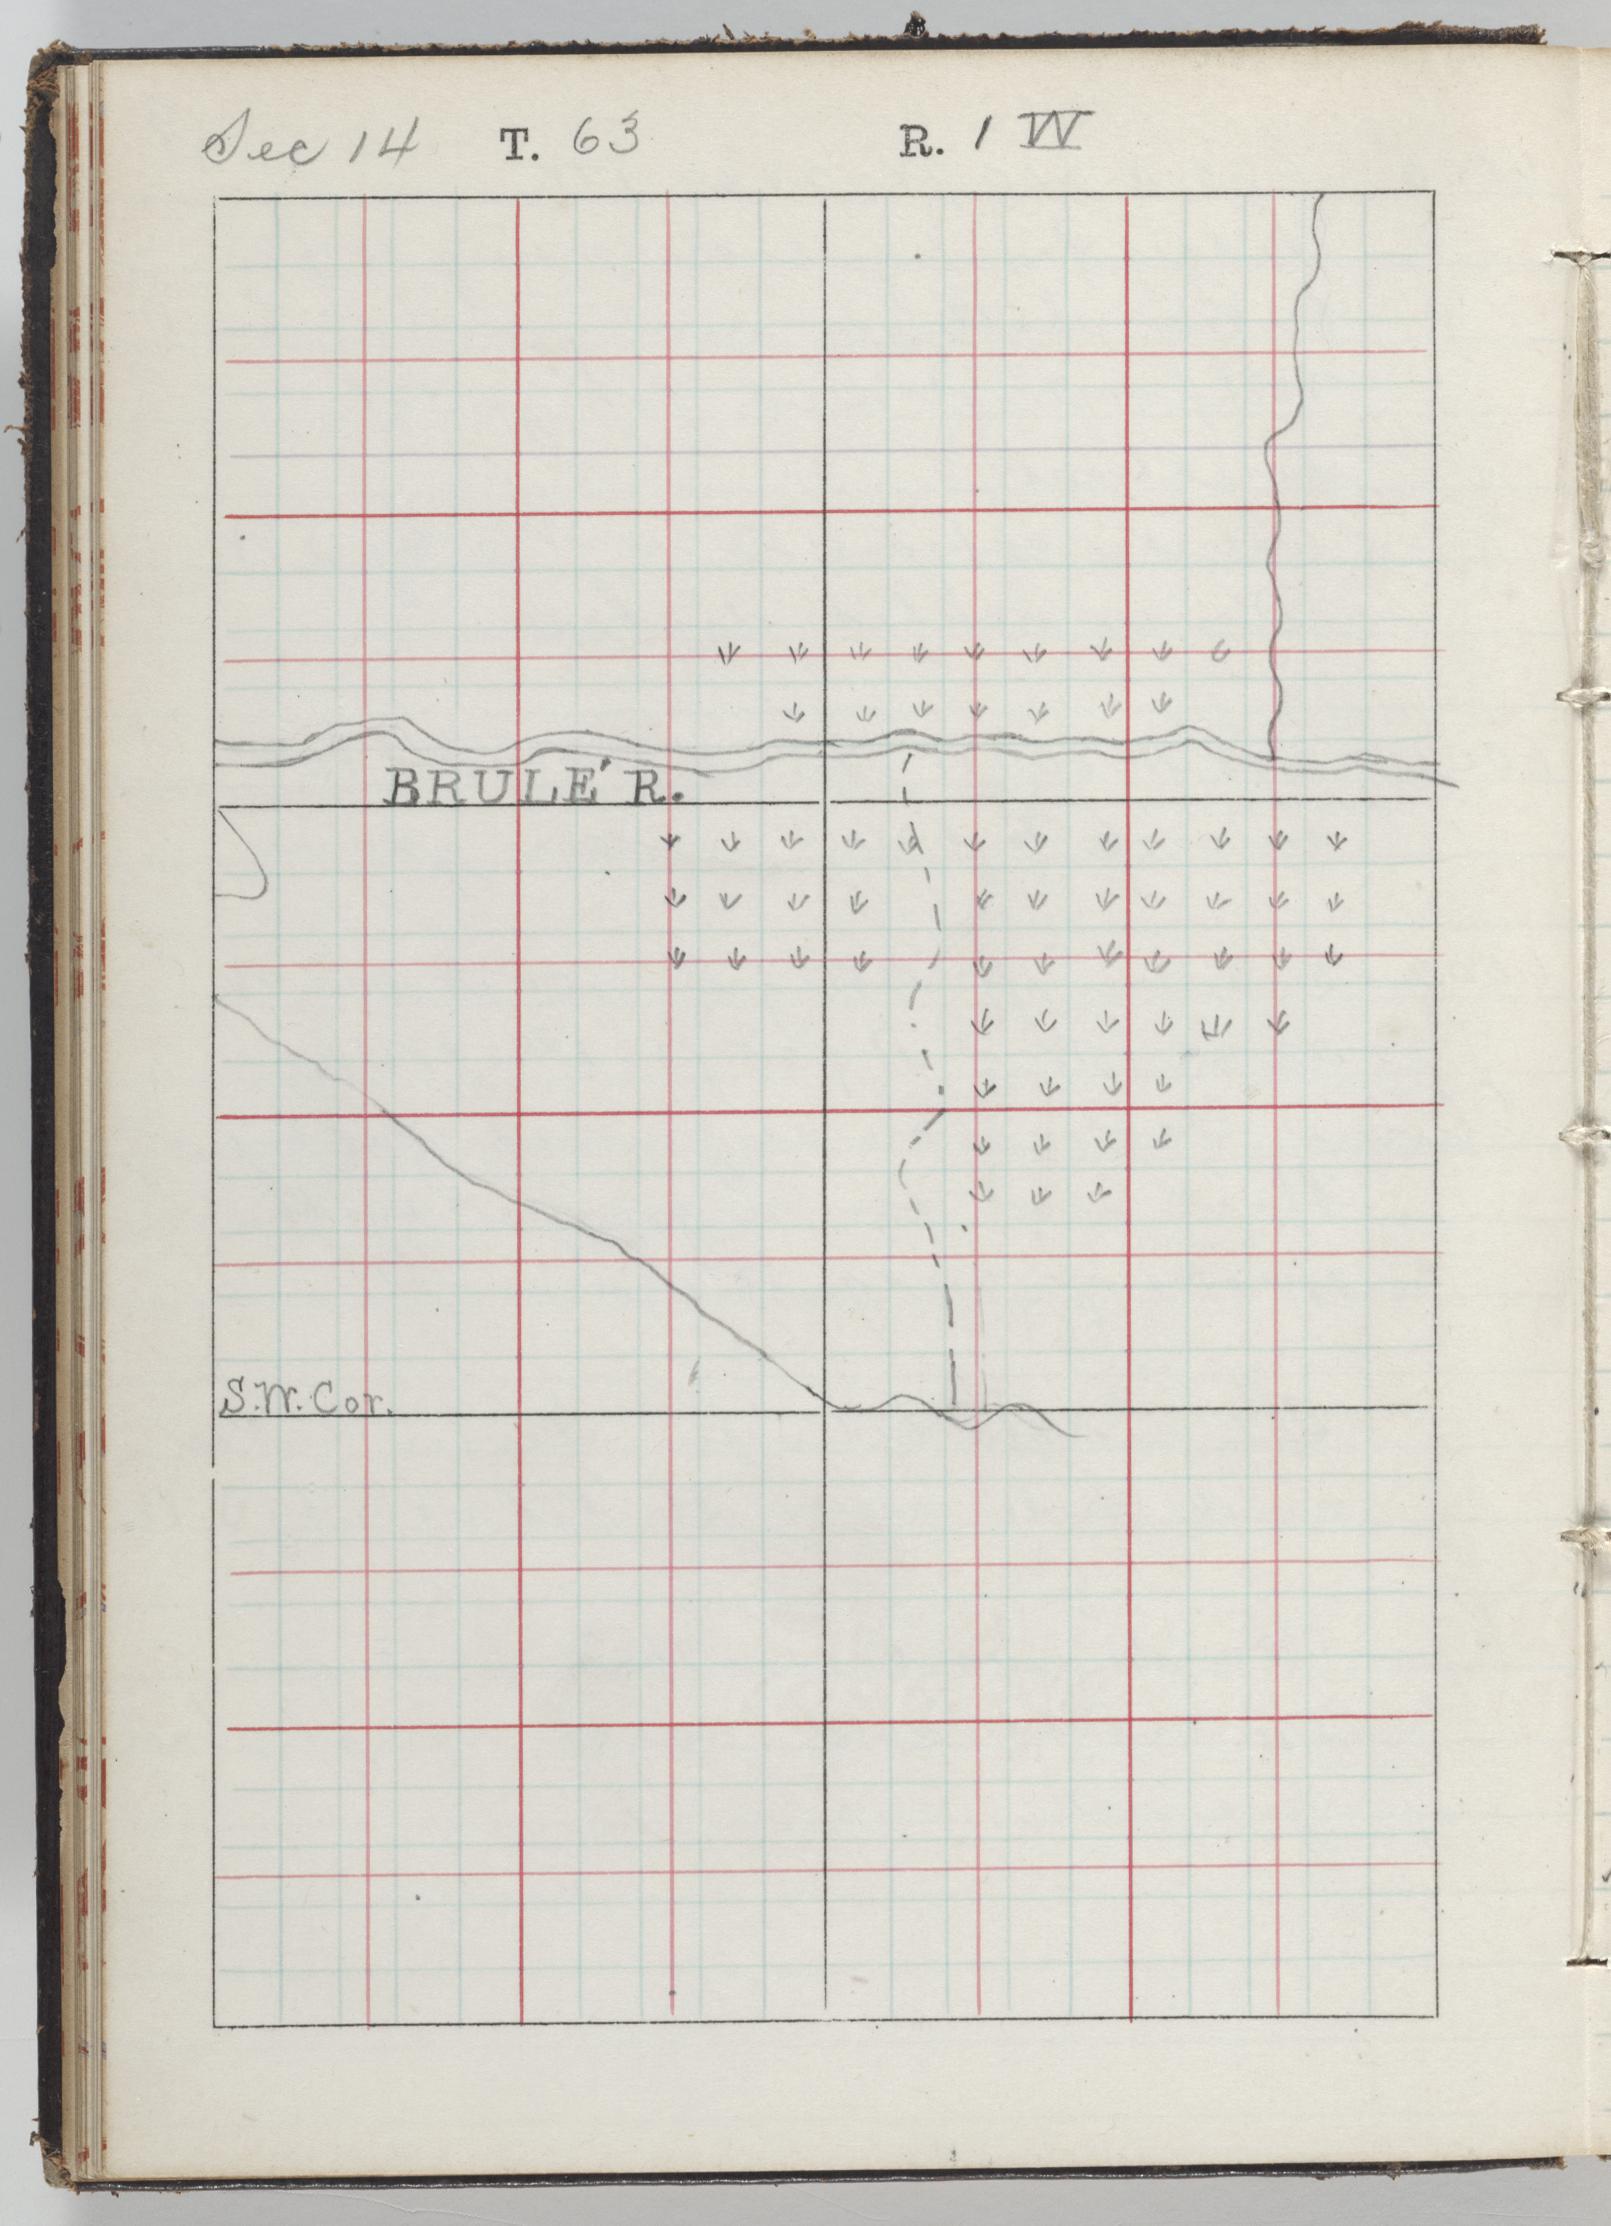 Sec 14 T. 63 R. 1 W
BRULÉ R.
S.W. Cor.